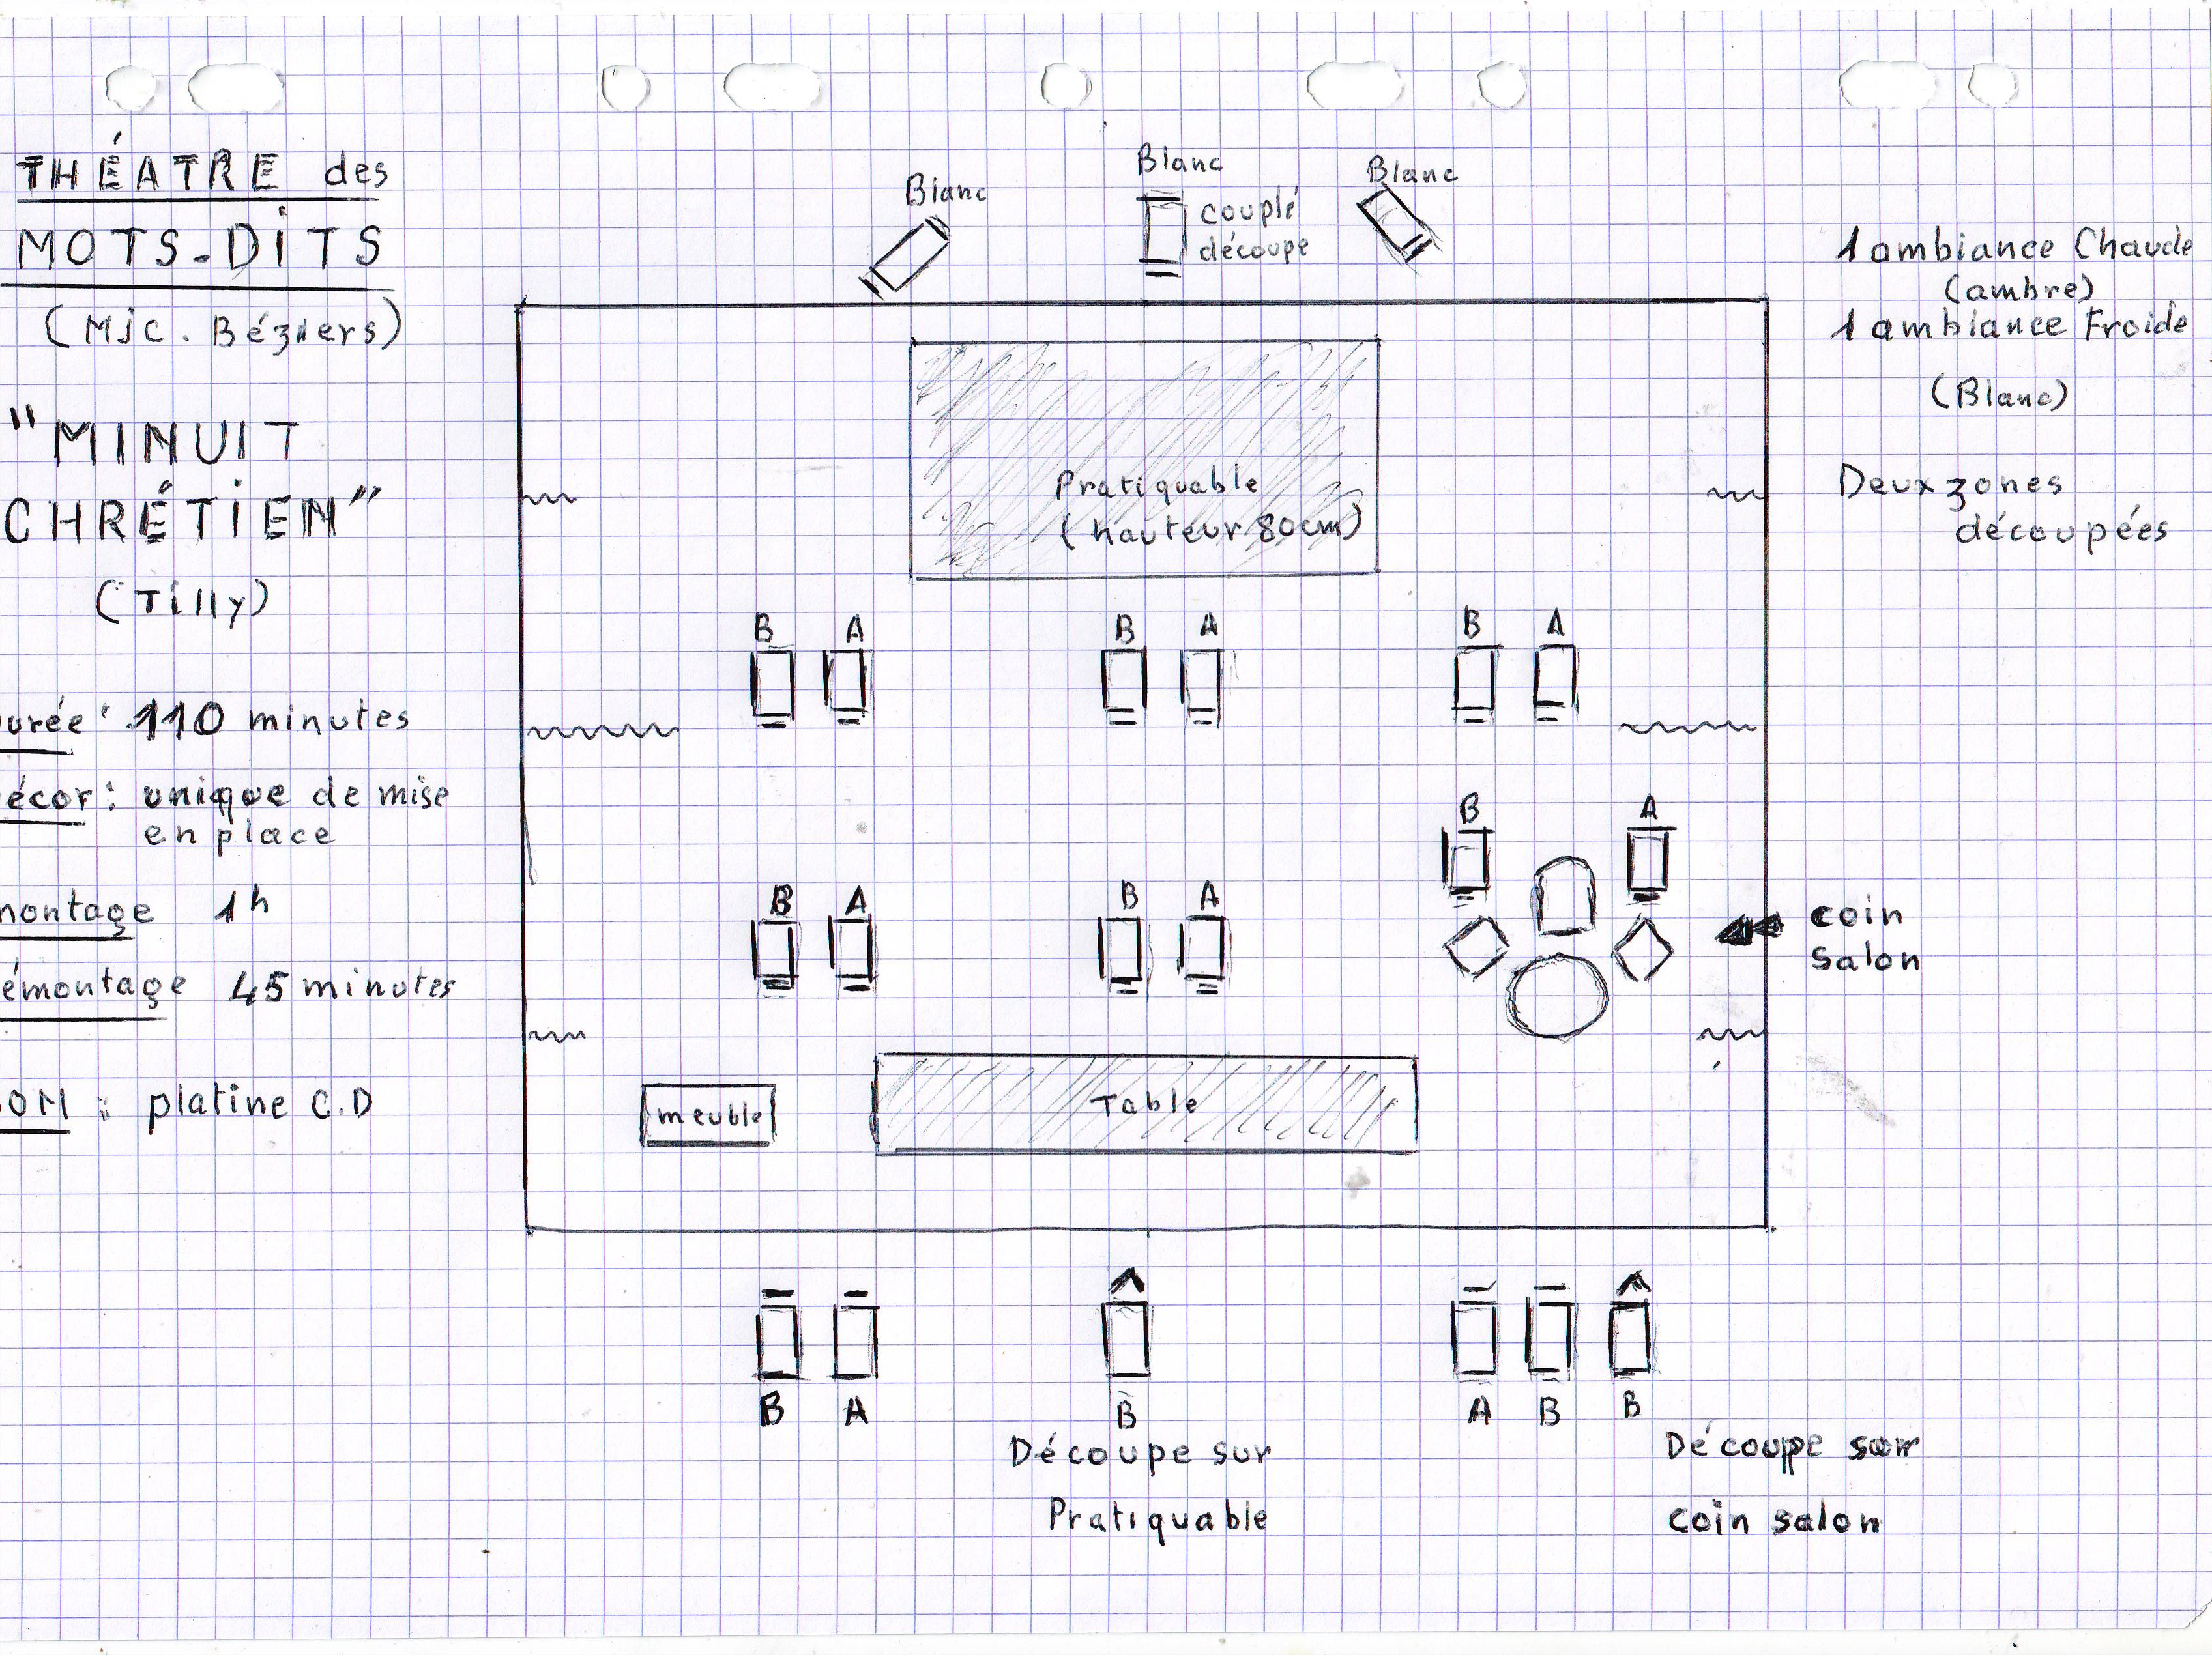 THÉATRE des
MOTS-DITS
(MJC. Béziers)
"MINUIT
CHRÉTIEN"
(Tilly)
urée : 110 minutes
écor : unique de mise
en place
montage 1h
émontage 45 minutes
SON : platine C.D
Blanc
Blanc
couplé
découpe
Blanc
Pratiquable
(hauteur 80cm)
B A
B A
B A
B A
B A
B A
coin
salon
meuble
Table
B A
B
Découpe sur
Pratiquable
A B B
Découpe sur
coin salon
1 ambiance Chaude
(ambre)
1 ambiance Froide
(Blanc)
Deux zones
découpées